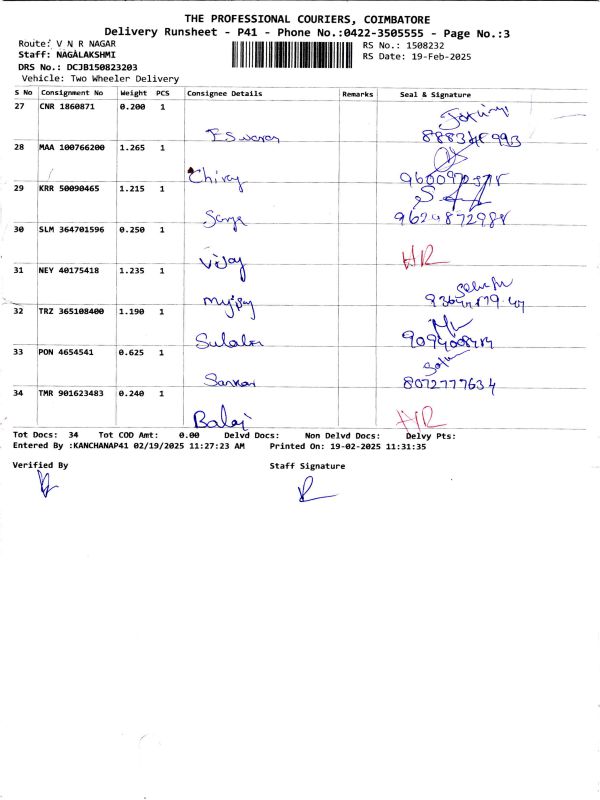 THE PROFESSIONAL COURIERS, COIMBATORE
Delivery Runsheet - P41 - Phone No.:0422-3505555 - Page No.:3
Route: V N R NAGAR RS No.: 1508232
Staff: NAGALAKSHMI RS Date: 19-Feb-2025
DRS No.: DCJB150823203
Vehicle: Two Wheeler Delivery
S No Consignment No Weight PCS Consignee Details Remarks Seal & Signature
27 CNR 1860871 0.200 1
Eswaran
28 MAA 100766200 1.265 1
29 KRR 50090465 1.215 1
Surya 9629872984
30 SLM 364701596 0.250 1
Vijay HR
31 NEY 40175418 1.235 1
32 TRZ 365108400 1.190 1
33 PON 4654541 0.625 1
Sankar 8072777634
34 TMR 901623483 0.240 1
Balaji HR
Tot Docs: 34 Tot COD Amt: 0.00 Delvd Docs: Non Delvd Docs: Delvy Pts:
Entered By :KANCHANAP41 02/19/2025 11:27:23 AM Printed On: 19-02-2025 11:31:35
Verified By Staff Signature